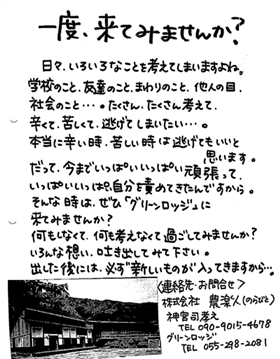 一度、来てみませんか?
日々、いろいろなことを考えてしまいますよね。
学校のこと、友達のこと、まわりのこと、他人の目、
社会のこと・・・。たくさん、たくさん考えて、
辛くて、苦しくて、逃げてしまいたい・・・。
本当に辛い時、苦しい時は逃げてもいいと
思います。
だって、今までいっぱいいっぱい頑張って、
いっぱいいっぱい自分を責めてきたんですから。
そんな時は、ぜひ「グリーンロッジ」に
来てみませんか?
何もしなくて、何も考えなくて過ごしてみませんか?
いろんな想い、吐き出してみて下さい。
出した後には、必ず新しいものが入ってきますから…。
〈連絡先・お問合せ〉
株式会社 農楽人(のらびと)
神宮司孝え
TEL 090-9015-4678
グリーンロッジ
TEL 055-298-2081